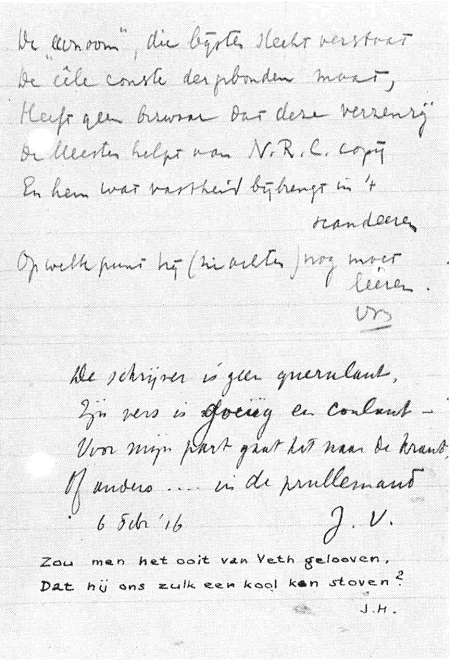 De "eenoom", die bijster slecht verstaat
De "êele conste der gebonden maat,
Heeft geen bezwaar dat deze verzenrij
De Meester helpt aan N.R.C. copij
En hem wat vastheid bijbrengt in 't
scandeeren
Op welk punt hij (zie acter) nog moet
leeren.
De schrijver is geen querulant,
Zijn vers is goeiig en coulant –
Voor mijn part gaat het naar de krant,
Of anders .... in de prullemand
6 Febr '16 J.V.
Zou men het ooit van Veth gelooven,
Dat hij ons zulk een kool kon stoven?
J.H.